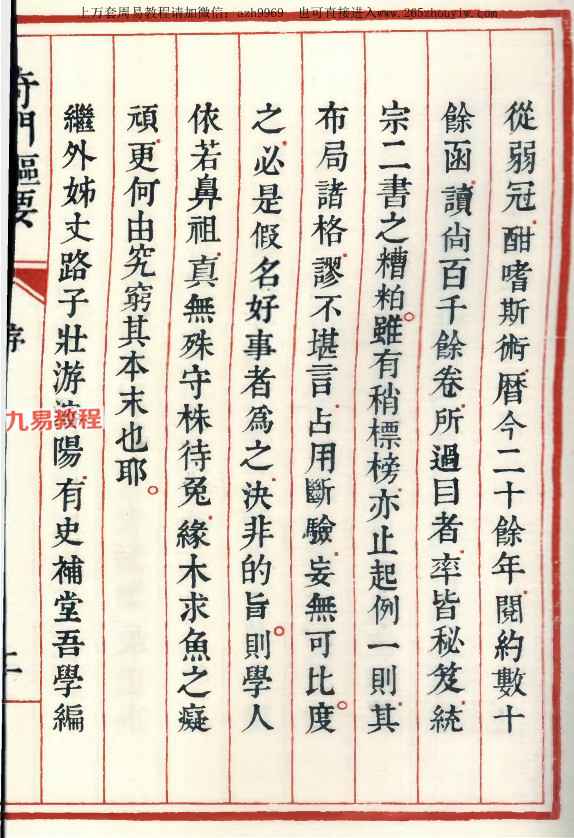 上万套周易教程请加微信：azh9969 也可直接进入www.265zhouyiw.com
從弱冠酣嗜斯術曆今二十餘年閱約數十
餘函讀尚百千餘卷所過目者率皆秘笈統
宗二書之糟粕。雖有稍標榜亦止起例一則其
布局諸格謬不堪言占用斷驗妄無可比度。
之必是假名好事者爲之決非的旨。則學人
依若鼻祖真無殊守株待兔緣木求魚之癡
頑更何由究窮其本末也耶。
繼外姊丈路子壯游 陽有史補堂吾學編
奇門樞要
序
九易教程